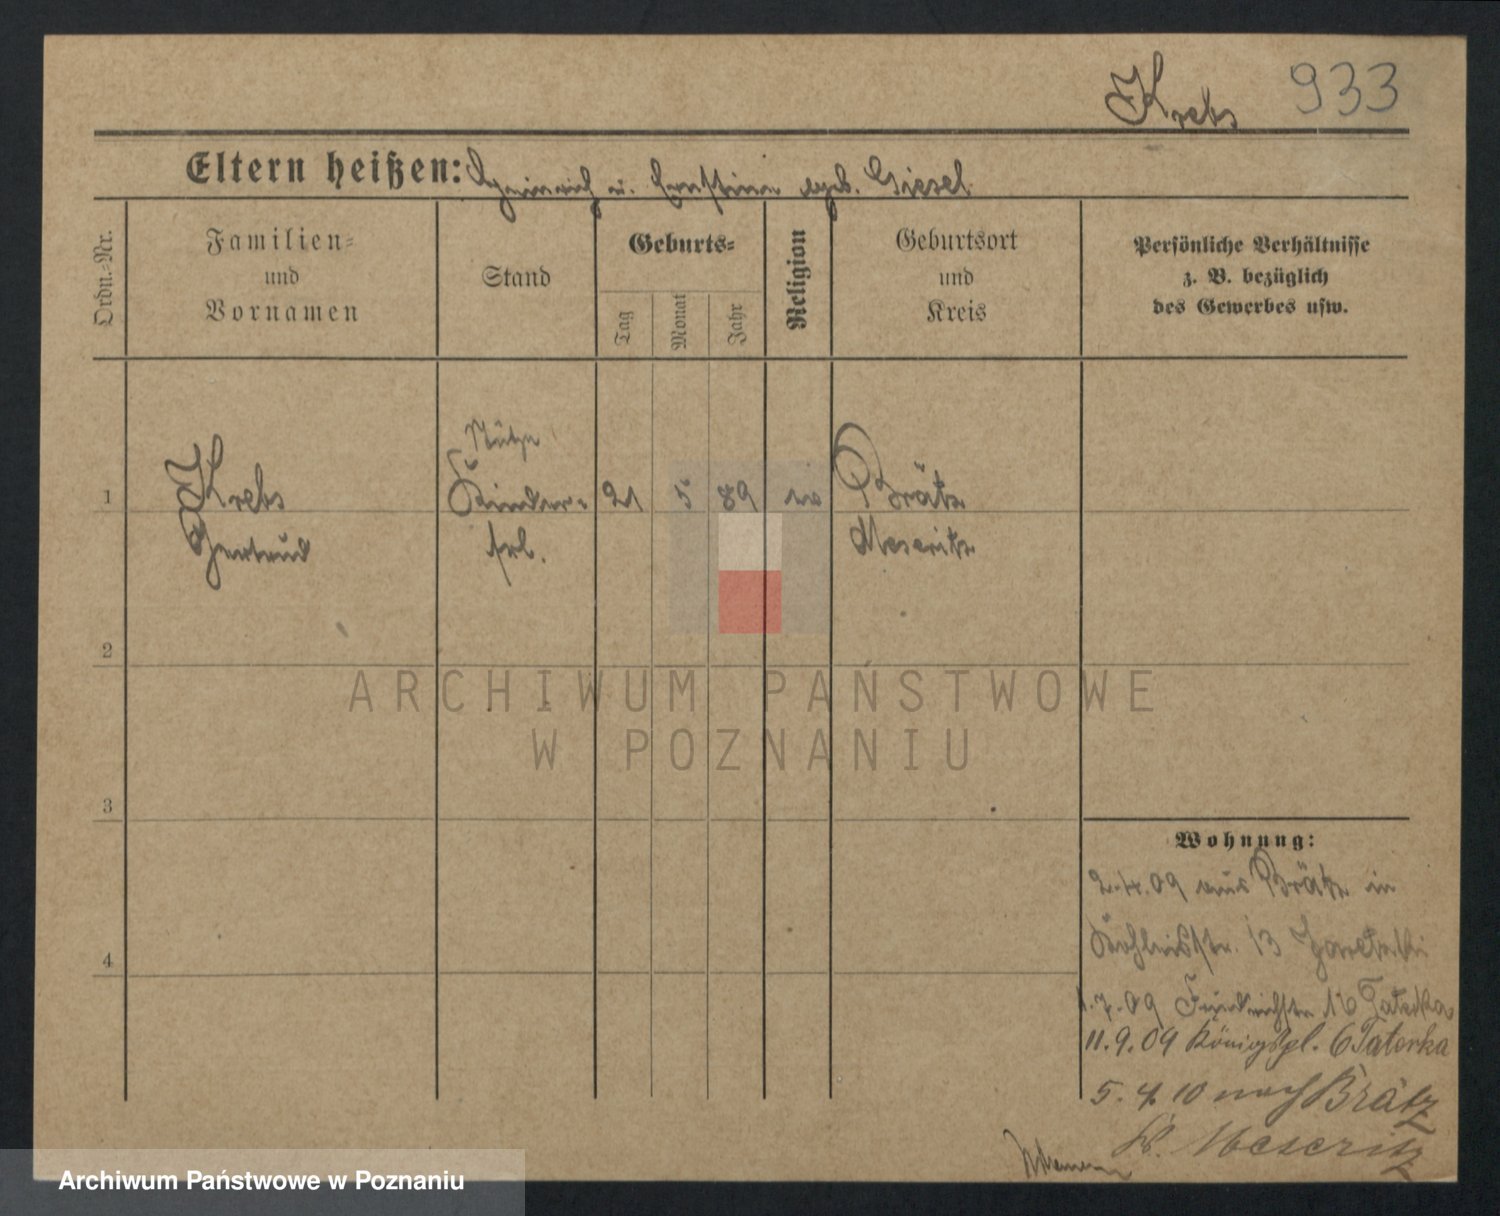 Krebs 933
Eltern heißen: Heinrich u. Ernstine geb. Giesel
Ordn.-Nr.
Familien-
und
Vornamen
Stand
Geburts-
Tag
Monat
Jahr
Religion
Geburtsort
und
Kreis
Persönliche Verhältnisse
z. B. bezüglich
des Gewerbes usw.
Stütze
1 Krebs Kinder- 21 5 89 ev Brätz
Gertrud frl. Meseritz
2
ARCHIWUM PAŃSTWOWE
W POZNANIU
3
Wohnung:
2.4.09 aus Brätz in
13
4
1.7.09 Friedrichstr 16 Tatorka
11.9.09 Königspl. 6 Tatorka
5.4.10 nach Brätz
Kr. Meseritz
Archiwum Państwowe w Poznaniu